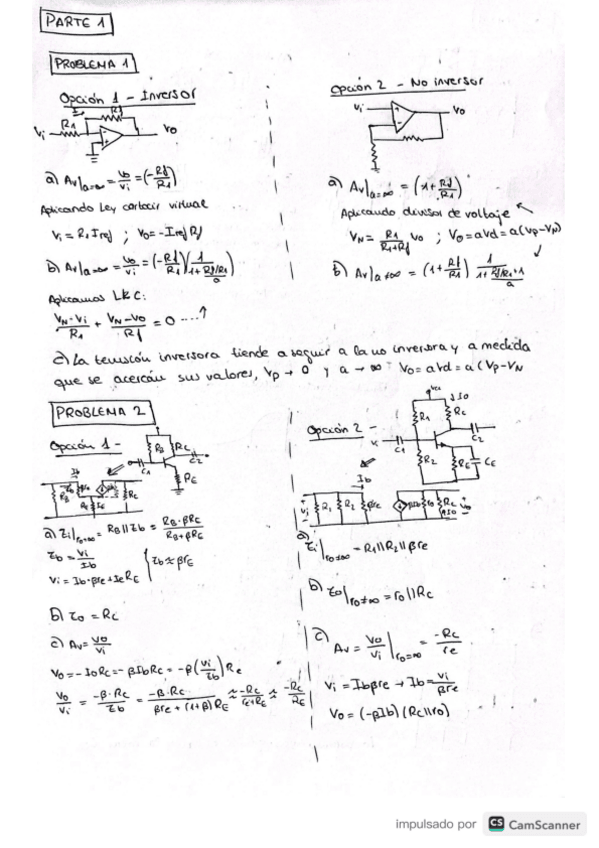 PARTE 1
PROBLEMA 1
Opción 1 - Inversor
R1
Rf
Vi
Vo
a) Av|a=∞ = Vo/Vi = (-Rf/R1)
Aplicando Ley cortocir virtual
Vi = R1 Iref ; Vo = -Iref Rf
b) Av|a≠∞ = Vo/Vi = (-Rf/R1)(1/(1+(1+Rf/R1)/a))
Aplicamos LKC:
(VN-Vi)/R1 + (VN-Vo)/Rf = 0 ....↑
Opción 2 - No inversor
Vi
Vo
a) Av|a=∞ = (1+Rf/R1)
Aplicando divisor de voltaje
VN = R1/(R1+Rf) Vo ; Vo = aVd = a(VP-VN)
b) Av|a≠∞ = (1+Rf/R1) 1/(1+(Rf/R1+1)/a)
c) La tensión inversora tiende a seguir a la no inversora y a medida
que se acercan sus valores, VP → 0 y a → ∞ Vo = aVd = a(VP-VN
PROBLEMA 2
Opción 1 -
RB
RC
C1
C2
RE
a) Zi|ro=∞ = RB||Zb = RB·βRE/(RB+βRE)
Zb = Vi/Ib
Vi = Ib·βre + IeRE
Zb ≈ βrE
b) Zo = RC
c) Av = Vo/Vi
Vo = -IoRC = -βIbRC = -β(Vi/Zb)RC
Vo/Vi = -β·RC/Zb = -β·RC/(βre+(1+β)RE) ≈ -RC/(re+RE) ≈ -RC/RE
Opción 2 -
Vcc
Io
R1
RC
C2
C1
R2
RE
CE
Ib
Vi
R1
R2
βre
ro
RC
Vo
a) Zi|ro≠∞ = R1||R2||βre
b) Zo|ro≠∞ = ro||RC
c) Av = Vo/Vi|ro=∞ = -RC/re
Vi = Ibβre → Ib = Vi/βre
Vo = (-βIb)(RC||ro)
impulsado por CS CamScanner